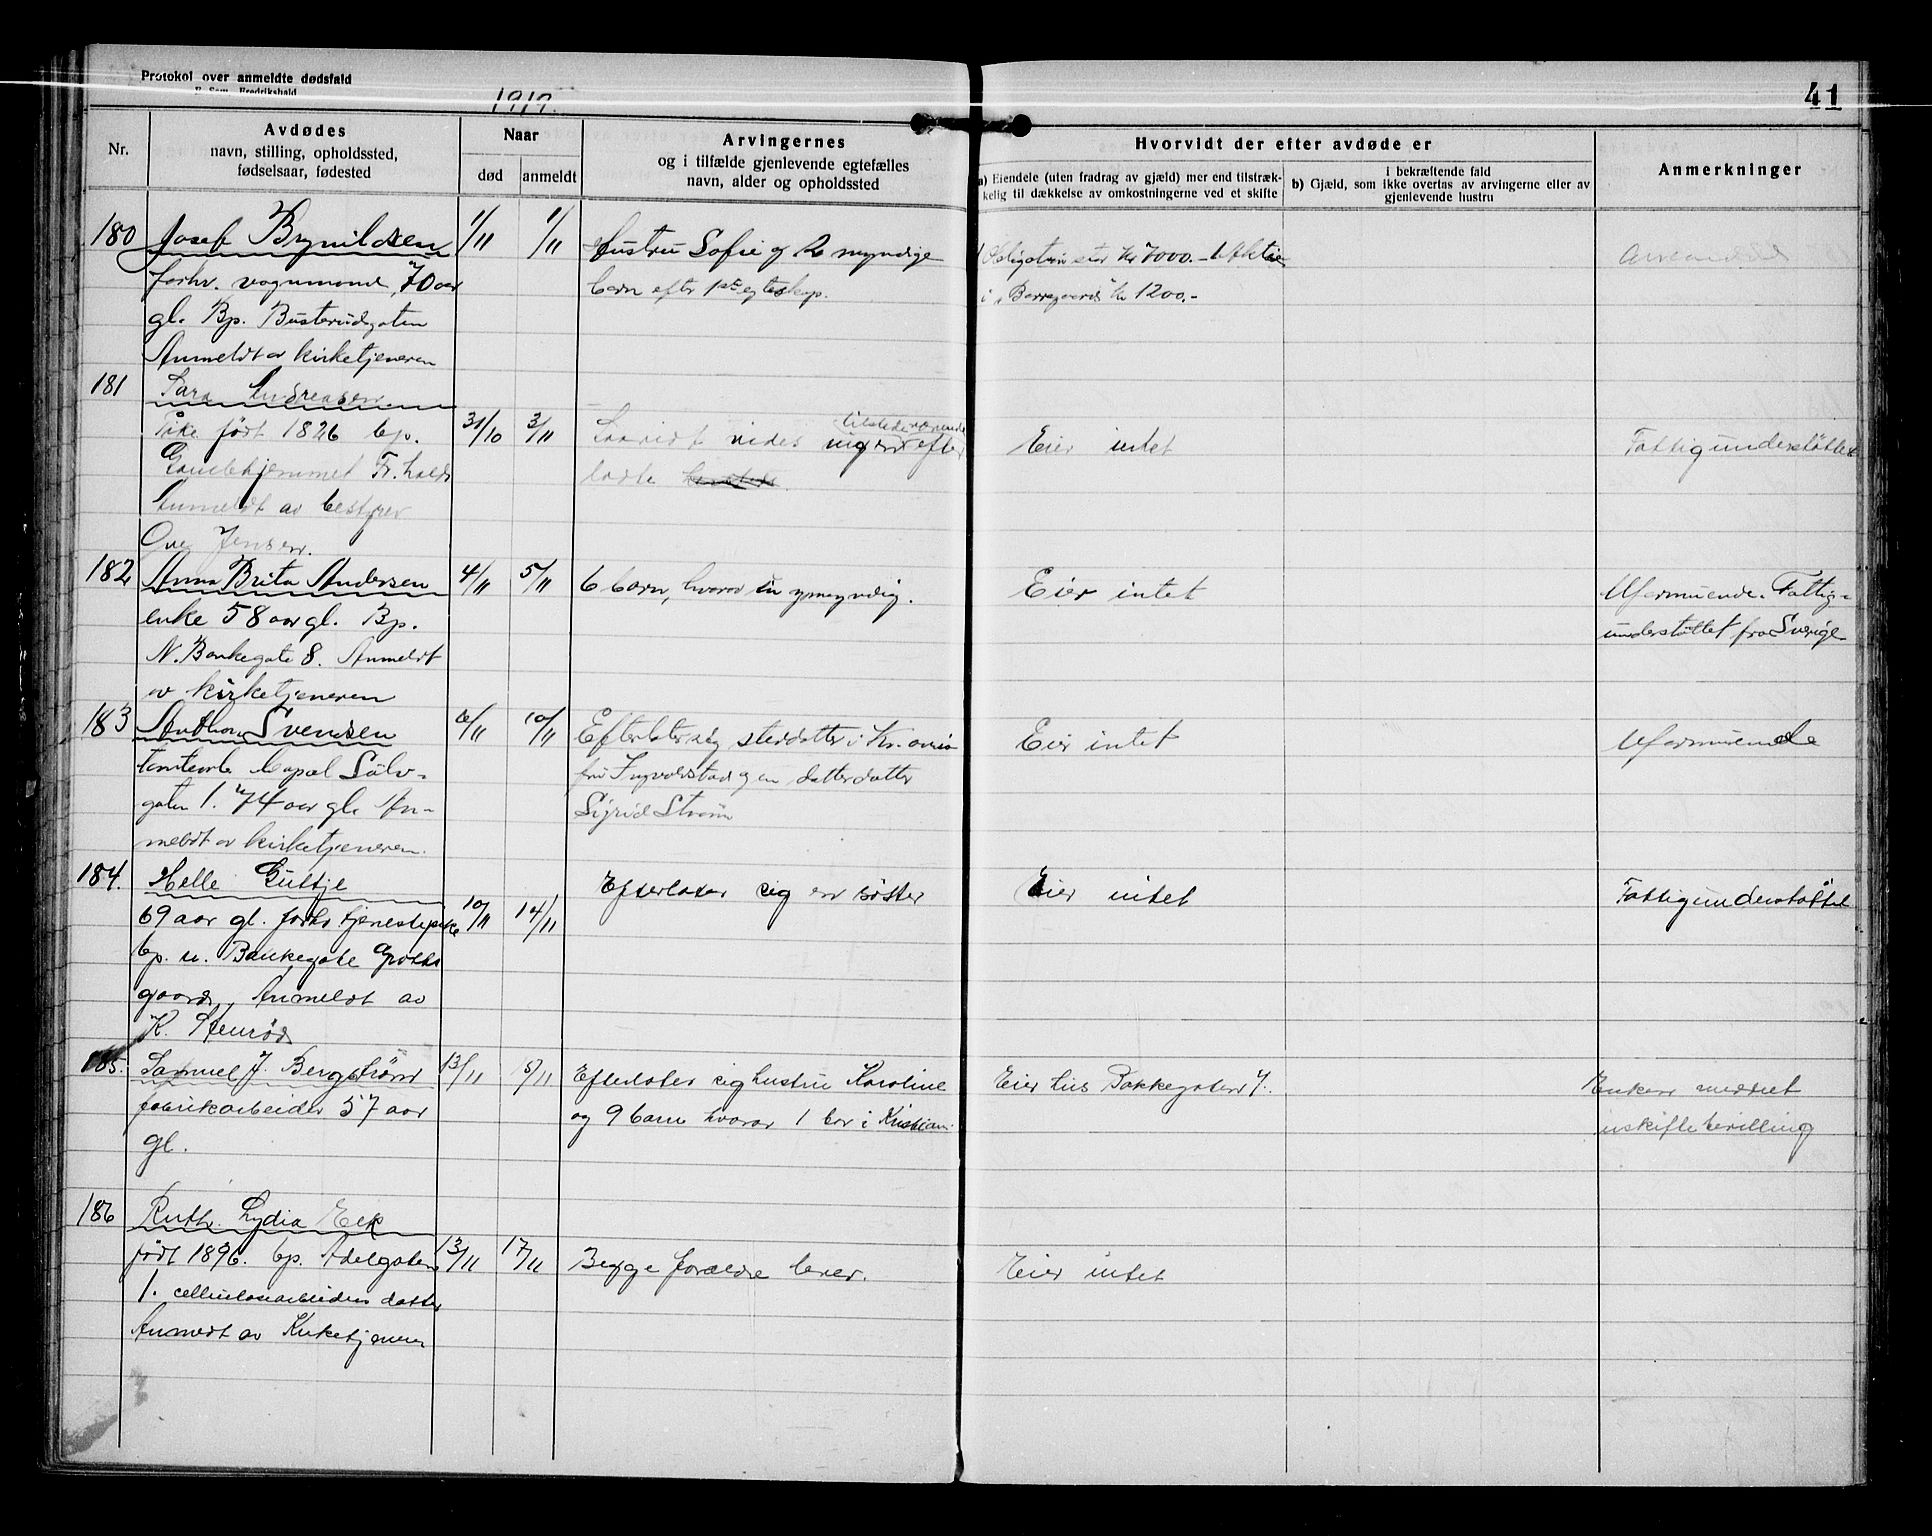 Protokol over anmeldte dødsfald
1917.
41
Nr.
Avdødes
navn, stilling, opholdssted,
fødselsaar, fødested
Naar
død
anmeldt
Arvingernes
og i tilfælde gjenlevende egtefælles
navn, alder og opholdssted
Hvorvidt der efter avdøde er
a) Eiendele (uten fradrag av gjæld) mer end tilstræk-
kelig til dækkelse av omkostningerne ved et skifte
i bekræftende fald
b) Gjæld, som ikke overtas av arvingerne eller av
gjenlevende hustru
Anmerkninger
180
Josef Brynildsen
forhv. vognmand, 70 aar
gl. Bp. Busterudgaten
Anmeldt av kirketjeneren
1/11
1/11
Hustru Sofie og 2 myndige
barn efter 1ste egteskap.
1 Obligation stor kr 7000.- 1 Aktie
i "Borregaard" kr 1200.-
181
Sara Andreasen
Pike født 1826 bp.
Gamlehjemmet Fr.hald
Anmeldt av bestyrer
Ove Jensen.
31/10
3/11
Saavidt vides ingen tilstedeværende efter
ladte
Eier intet
Fattigunderstøttet
182
Anna Brita Andersen
enke 58 aar gl. Bp.
N. Bankegate 8. Anmeldt
av kirketjeneren
4/11
5/11
6 barn, hvorav en umyndig.
Eier intet
Uformuende. Fattig-
understøttet fra Sverige
183
Anthon Svendsen
tomtearb. Bopæl Sölv-
gaten 1. 74 aar gl. An-
meldt av kirketjeneren.
6/11
10/11
Efterlater sig steddatter i Kr.ania
fru Ingvoldstad og en datterdatter
Sigrid Strøm
Eier intet
Uformuende
184.
Helle Gultje
69 aar gl. forhv. tjenestepike
bp. n. Bankegate
gaard, Anmeldt av
K. Stenrød
10/11
14/11
Efterlater sig en søster
Eier intet
Fattigunderstøttet
185.
Samuel J. Bergström
fabrikarbeider 57 aar
gl.
13/11
Efterlater sig hustru Karoline
og 9 barn hvorav 1 bor i Kristiania
Eier hus Bakkegaten 7.
Enken meddelt
uskiftebevilling
186
Ruth Lydia Eek
født 1896. bp. Adelgaten
1. cellulosearbeiders datter
Anmeldt av Kirketjeneren
13/11
17/11
Begge forældre lever.
Eier intet